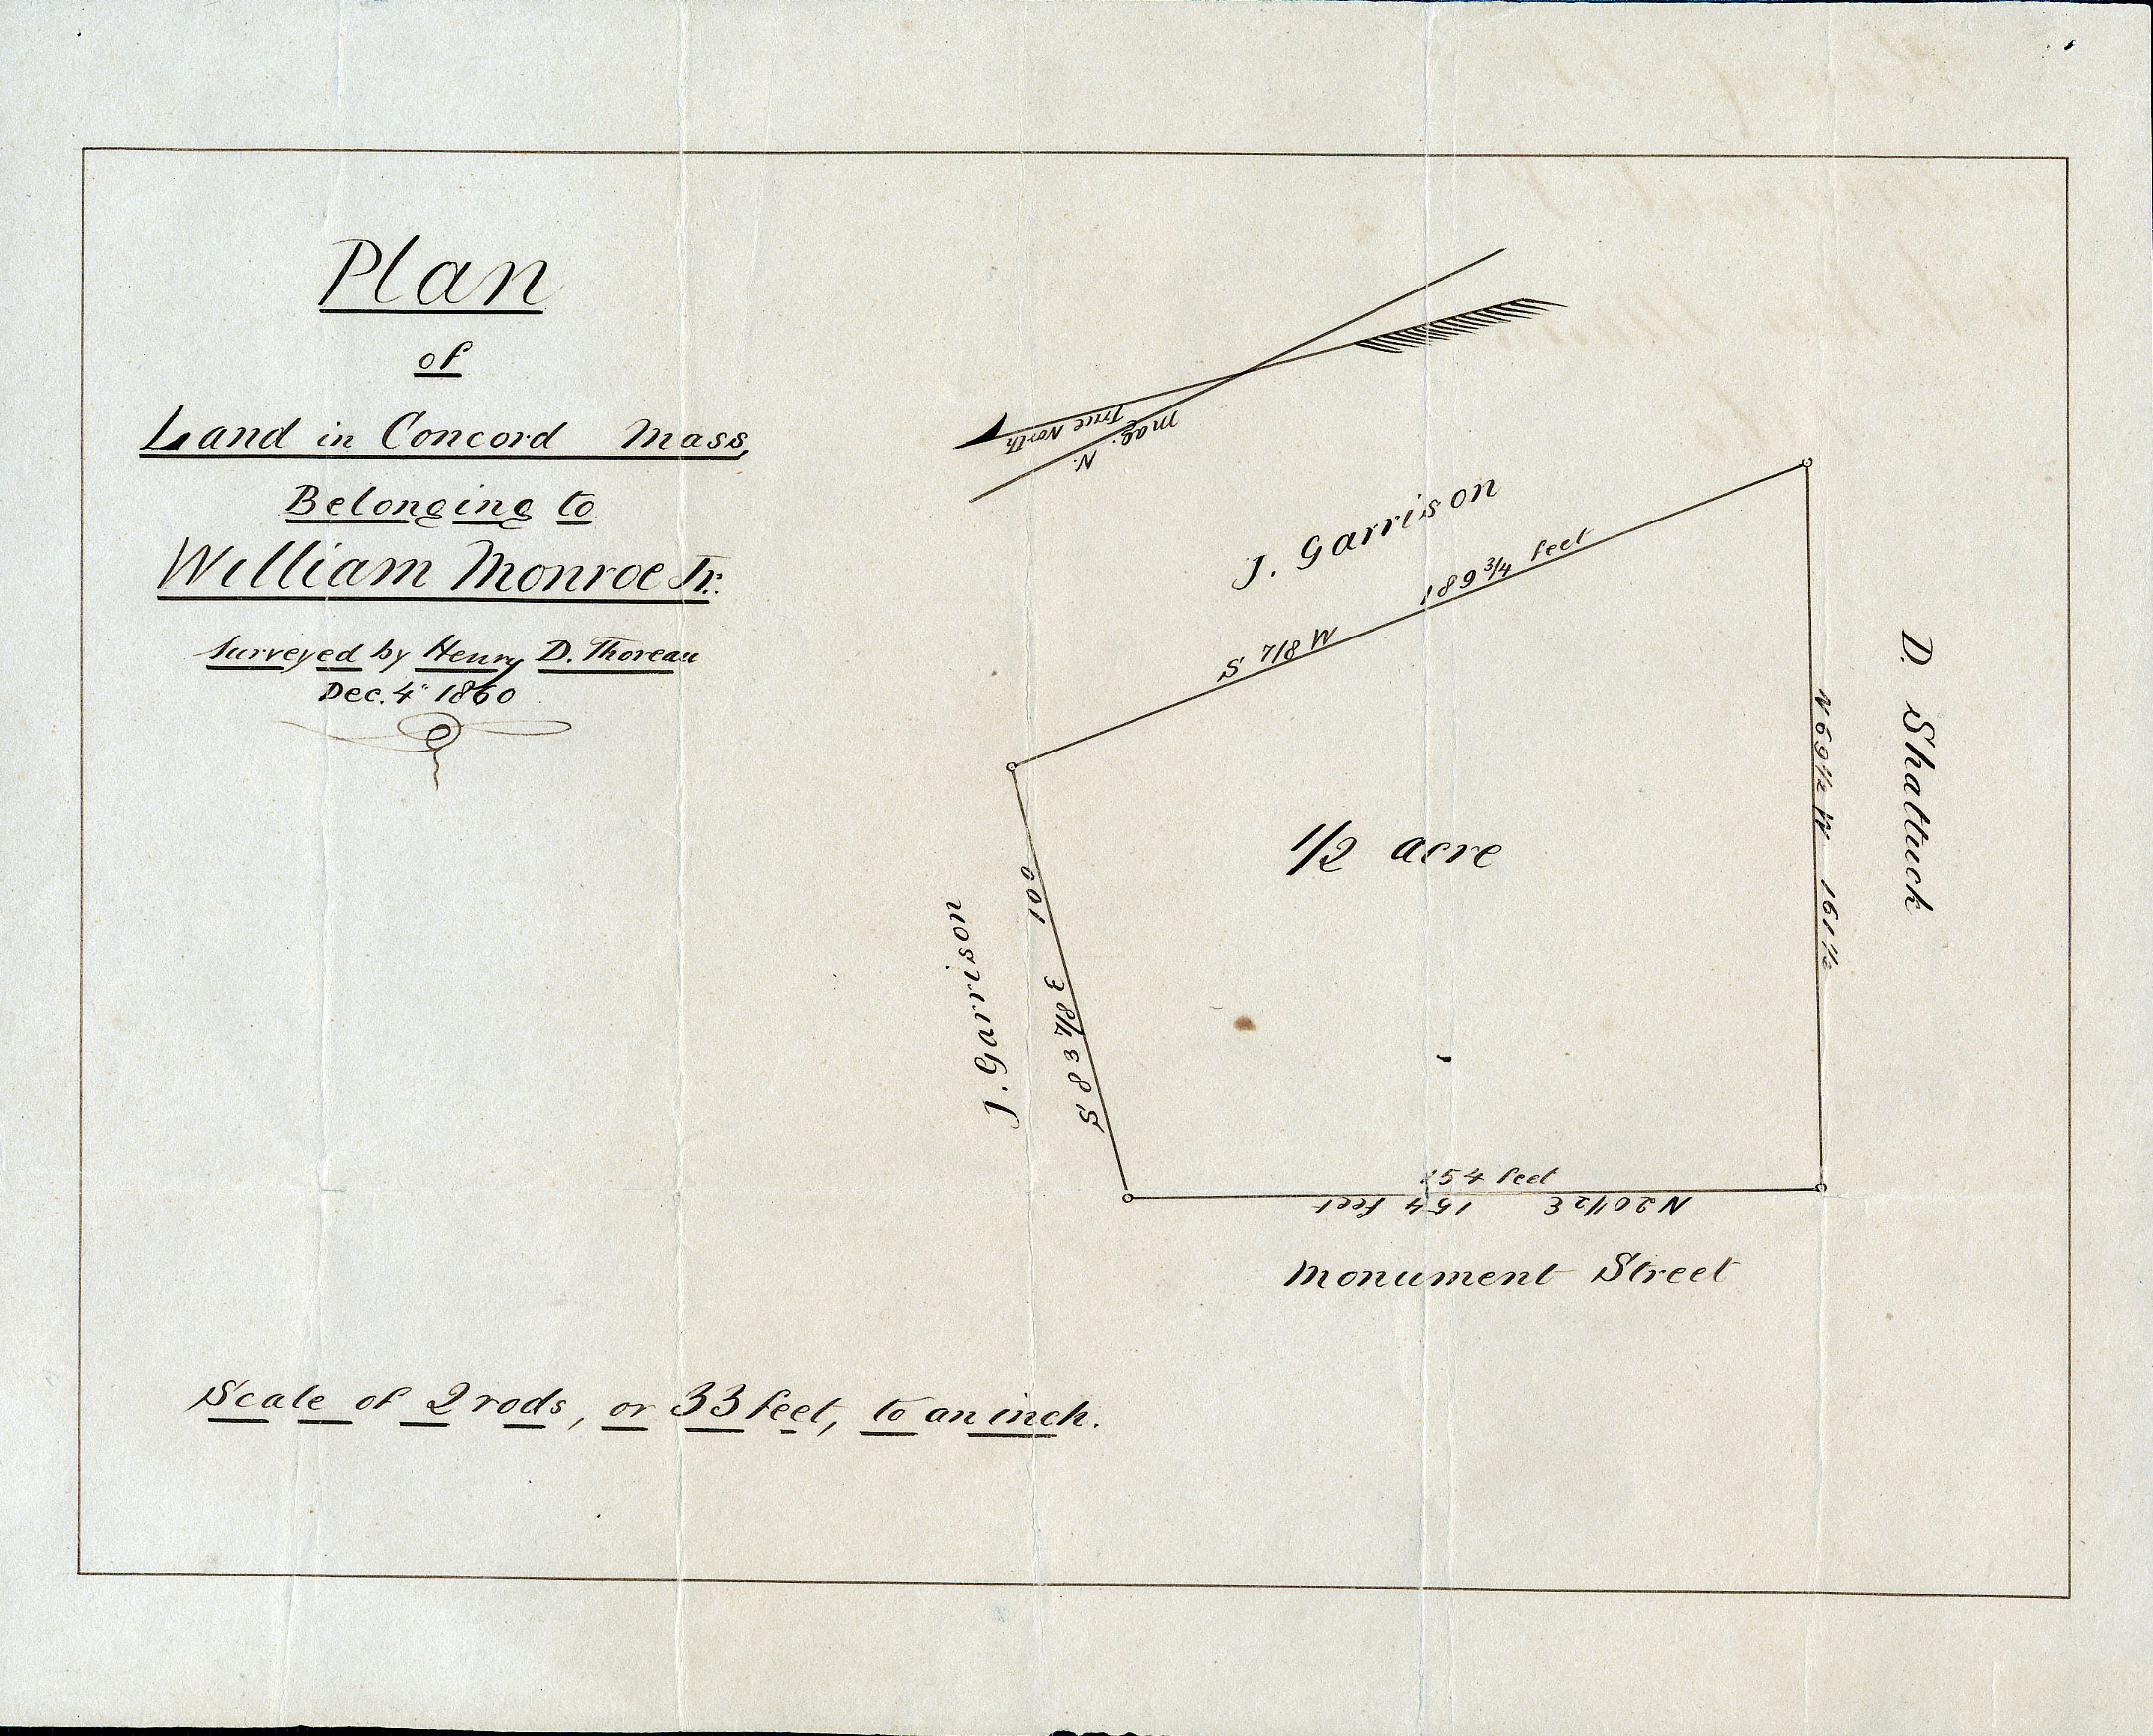 Plan
of
Land in Concord Mass,
Belonging to
William Monroe Jr.
Surveyed by Henry D. Thoreau
Dec. 4" 1860
True North
Mag. N.
J. Garrison
189 3/4 feet
S 7/8 W
D. Shattuck
N 69 1/2 W 161 1/2
1/2 acre
J. Garrison
S 83 7/8 E 100
154 feet
N 20 1/2 E 154 feet
Monument Street
Scale of 2 rods, or 33 feet, to an inch.